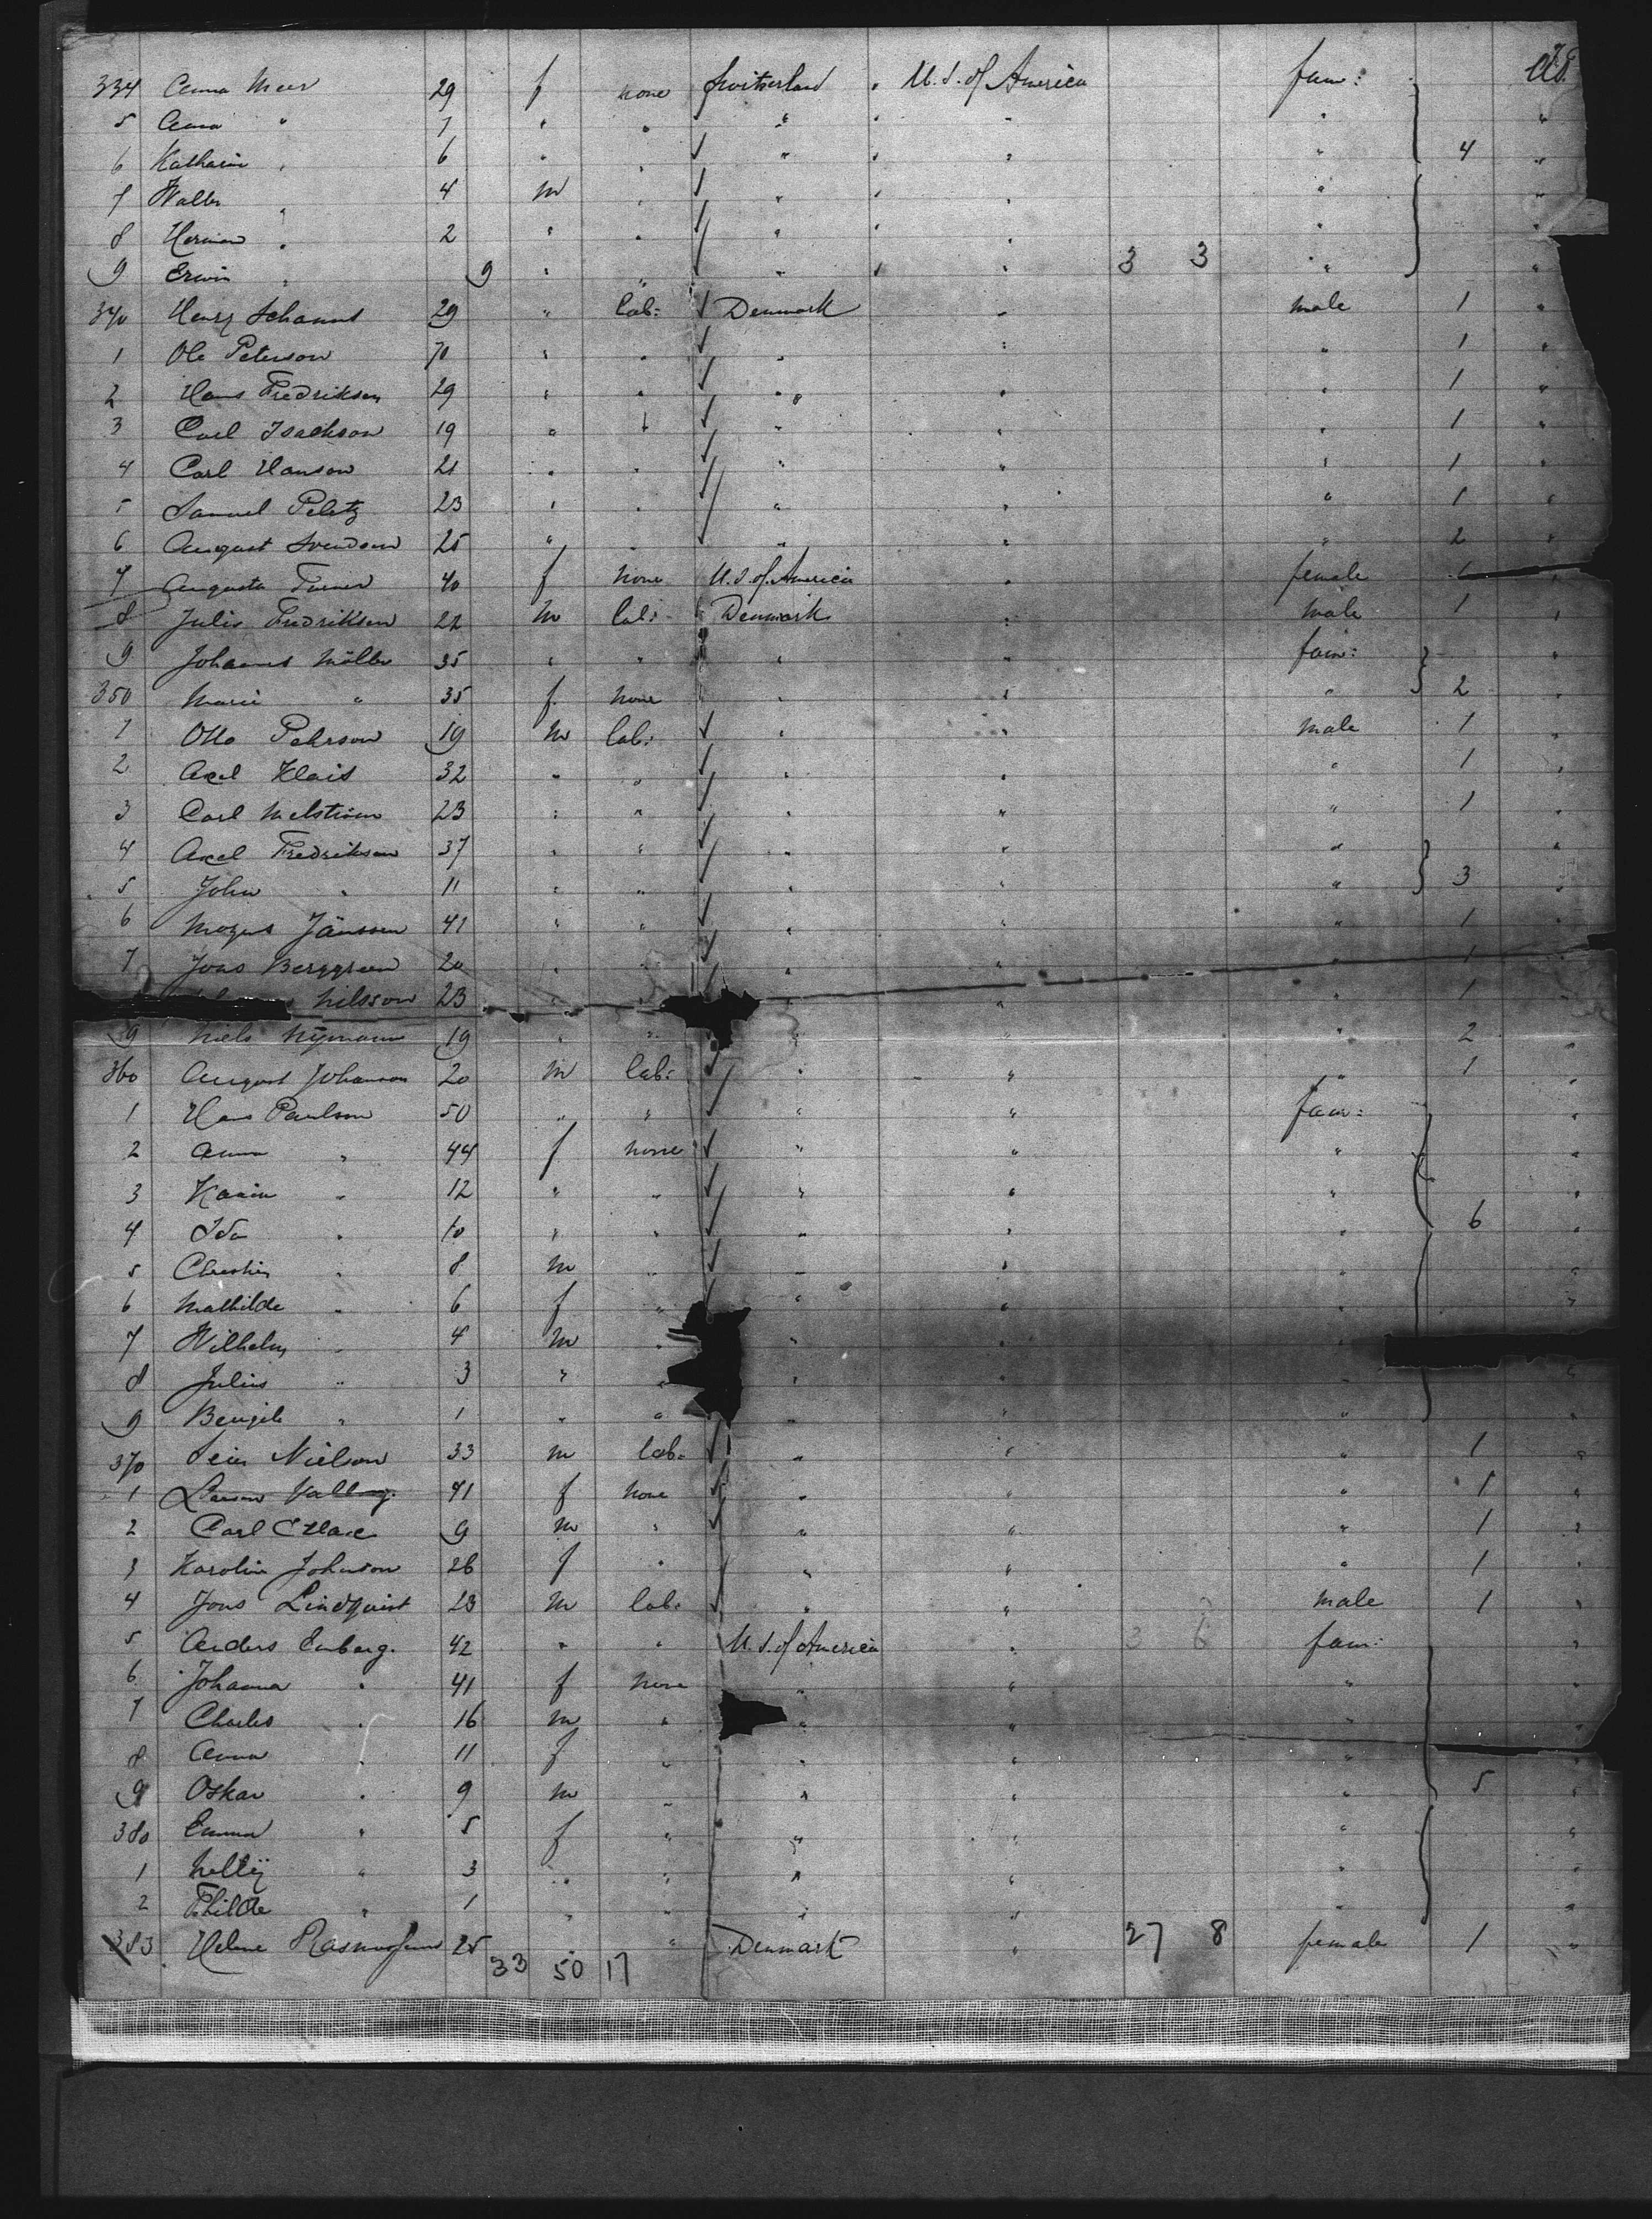 334 Anna Meer 29 f none Switserland " U.S. of America fam:
5 Anna " 7 " " " " " "
6 Katharin " 6 " " " " " " 4 "
7 Walter " 4 m " " " " " "
8 Herman " 2 " " " " " " "
9 Erwin " 9 " " " " " 3 3 " "
340 Henry 29 " lab: Denmark " male 1 "
1 Ole Peterson 70 " " " " " 1 "
2 Hans Fredriksen 29 " " " " " 1 "
3 Carl Isackson 19 " " " " " 1 "
4 Carl Hanson 21 " " " " " 1 "
5 Samuel 23 " " " " " 1 "
6 August Svendsen 25 " " " " " 2 "
7 Augusta Turner 40 f none U.S. of America " female "
8 Julis Fredriksen 22 m lab: Denmark " male 1 "
9 Johannes Möller 35 " " " " fam: "
350 Marie " 35 f. none " " " 2 "
1 Otto Pehrson 19 m lab: " " male 1 "
2 Axel Klais 32 " " " " " 1 "
3 Carl Melström 23 " " " " " 1 "
4 Axel Fredriksen 37 " " " " " "
5 John " 11 " " " " " 3 "
6 Mozus Jänssen 41 " " " " " 1 "
7 Jons Berggreen 20 " " " " " 1 "
Nilsson 23 " " " " " 1 "
9 Niels Nÿmann 19 " " " " " 2 "
360 August Johanson 20 m lab: " " " 1 "
1 Hans Paulson 50 " " " " fam: "
2 Anna " 44 f none " " " "
3 Karin " 12 " " " " " "
4 Ida " 10 " " " " " 6 "
5 " 8 m " " " " "
6 Mathilde " 6 f " " " " "
7 Wilhelm " 4 m " " " "
8 Julius " 3 " " " " " "
9 " 1 " " " " " "
370 Nielson 33 m lab: " " " 1 "
1 41 f none " " " 1 "
2 Carl 9 m " " " " 1 "
3 Karolin Johnson 26 f " " " " 1 "
4 Jons Lindquist 23 m lab: " " male 1 "
5 Anders Enberg. 42 " " U.S. of America " 3 6 fam: "
6 Johanna " 41 f none " " " "
7 Charles " 16 m " " " " "
8 Anna " 11 f " " " " "
9 Oskar " 9 m " " " " 5 "
380 Emma " 5 f " " " " "
1 Nellÿ " 3 " " " " " "
2 " 1 " " " " " "
383 Helene 25 " " Denmark " 27 8 female 1 "
33 50 17